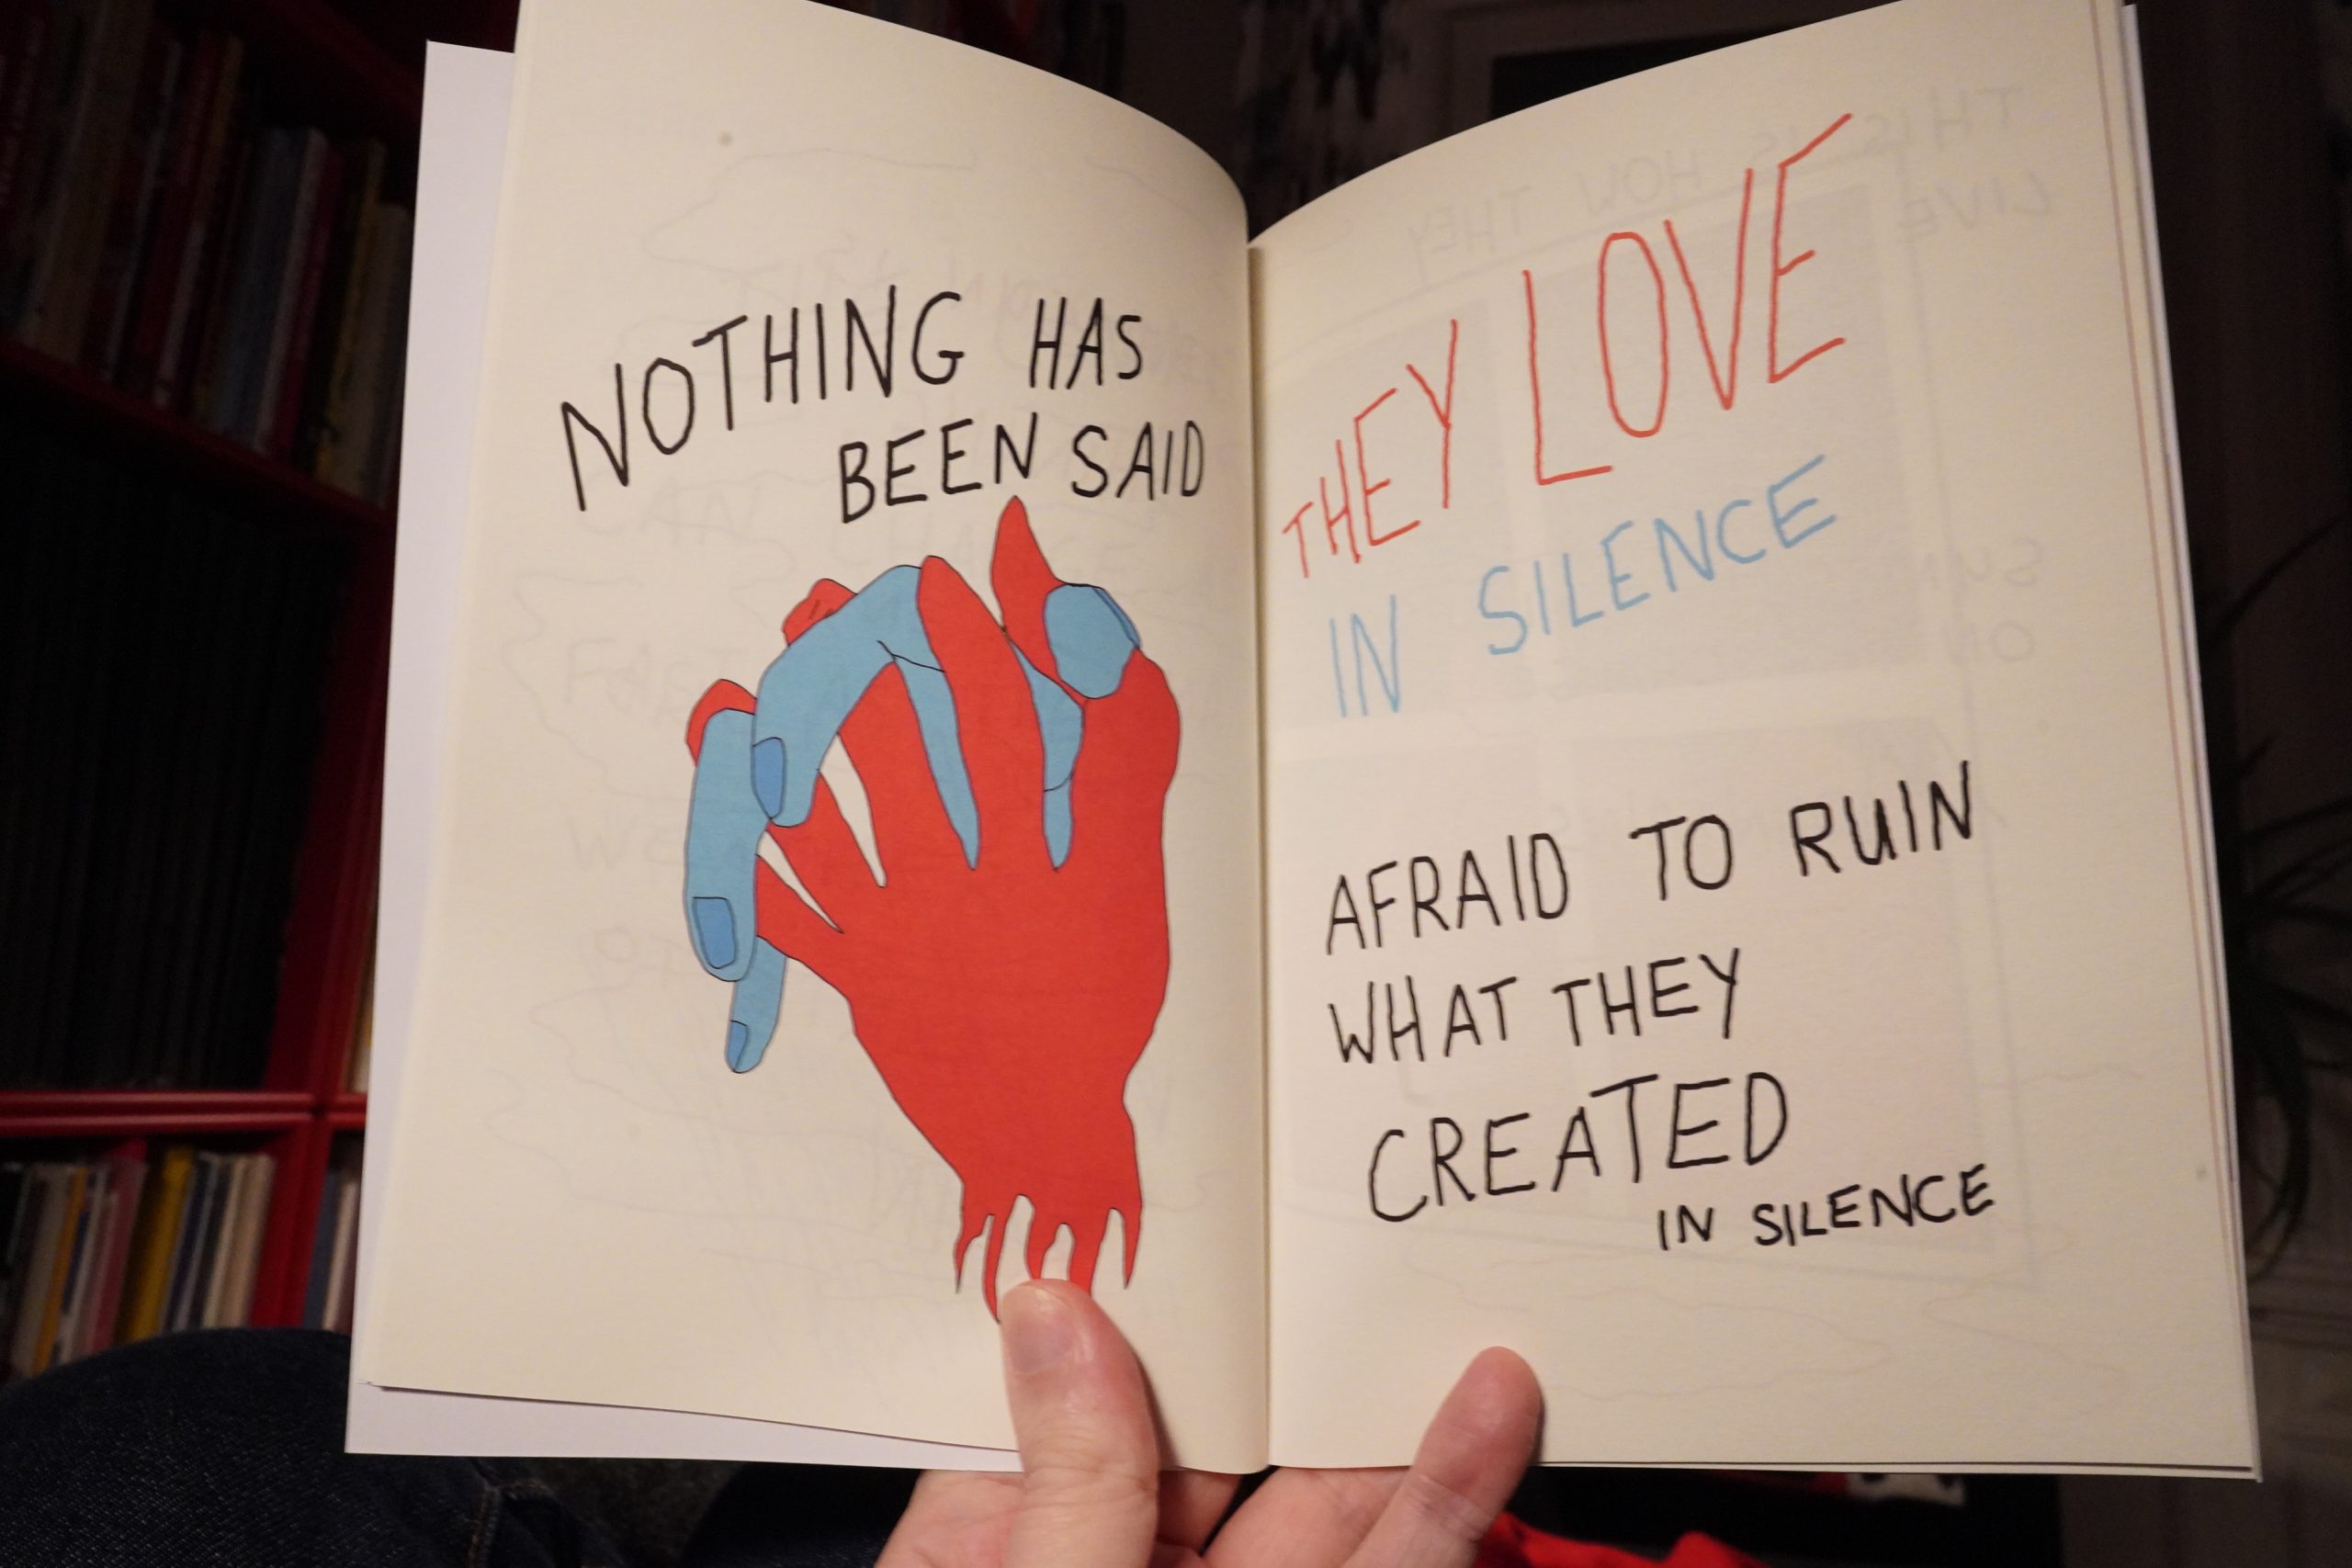 NOTHING HAS
BEEN SAID
THEY LOVE
IN SILENCE
AFRAID TO RUIN
WHAT THEY
CREATED
IN SILENCE
THIS IS HOW THEY
LIVE